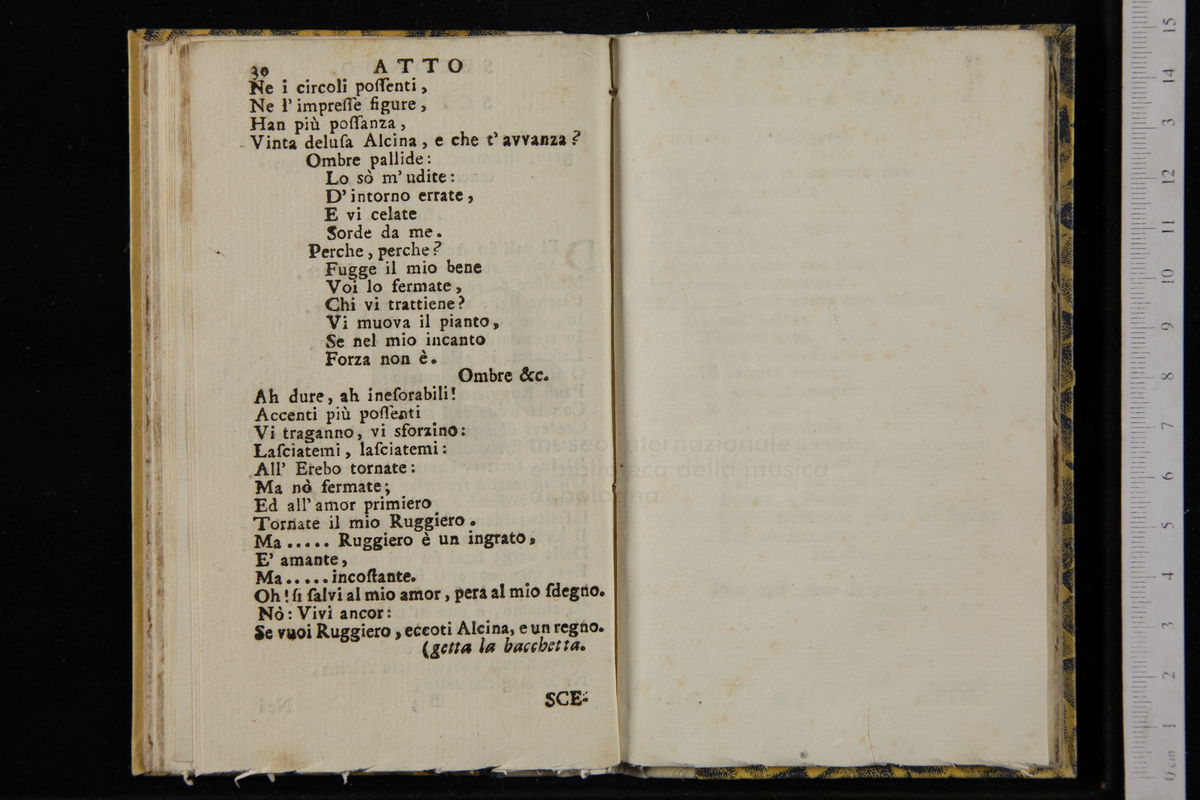 30 ATTO
Ne i circoli poſſenti,
Ne l'impreſſe figure,
Han più poſſanza,
Vinta deluſa Alcina, e che t'avvanza?
Ombre pallide:
Lo sò m'udite:
D'intorno errate,
E vi celate
Sorde da me.
Perche, perche?
Fugge il mio bene
Voi lo fermate,
Chi vi trattiene?
Vi muova il pianto,
Se nel mio incanto
Forza non è.
Ombre &c.
Ah dure, ah ineſorabili!
Accenti più poſſenti
Vi traganno, vi sforzino:
Laſciatemi, laſciatemi:
All' Erebo tornate:
Ma nò fermate;
Ed all'amor primiero
Tornate il mio Ruggiero.
Ma ..... Ruggiero è un ingrato,
E' amante,
Ma ..... incoſtante.
Oh! ſi ſalvi al mio amor, pera al mio ſdegno.
Nò: Vivi ancor:
Se vuoi Ruggiero, eccoti Alcina, e un regno.
(getta la bacchetta.
SCE-
museo internazionale
e biblioteca della musica
di bologna
0 cm 1 2 3 4 5 6 7 8 9 10 11 12 3 14 15